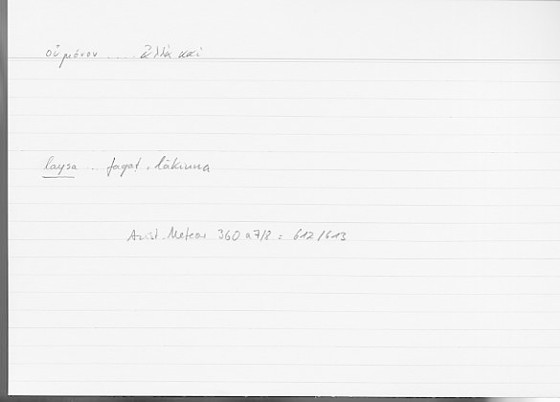 οὐ μόνον .... ἀλλὰ καὶ
laysa .. faqaṭ . lākinna
Arist. Meteor 360 a 7/8 = 612/613